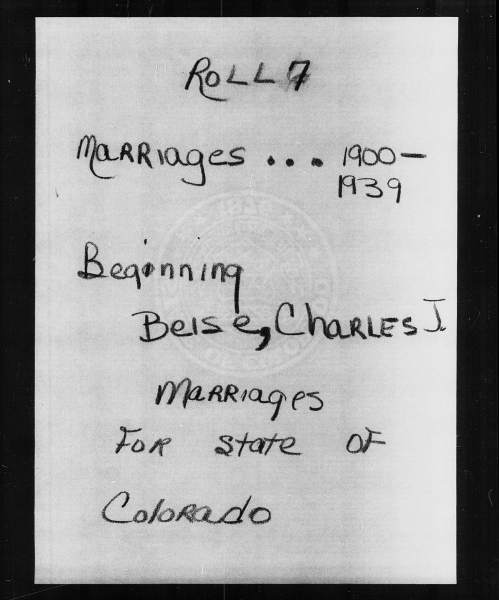 ROLL 7
MARRIAGES ... 1900-
1939
Beginning
Beise, CHARLES J.
MARRIAGES
FOR State OF
Colorado